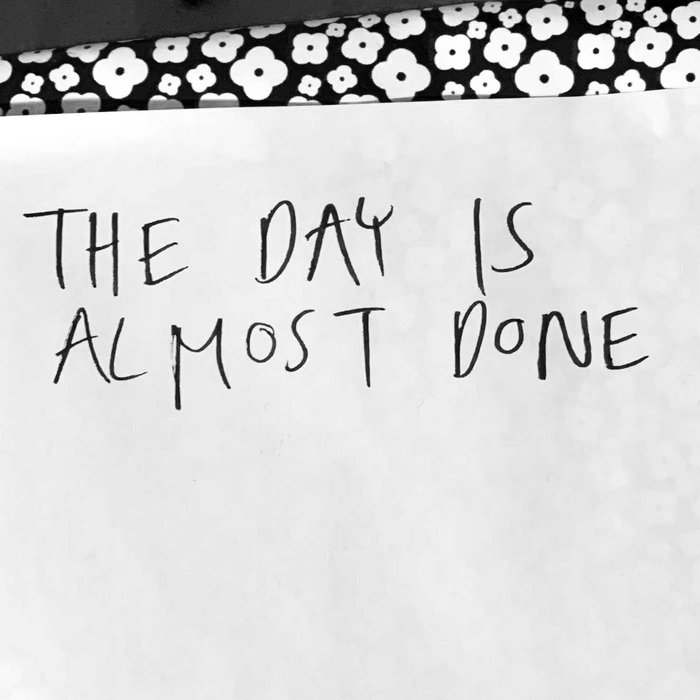 THE DAY IS
ALMOST DONE